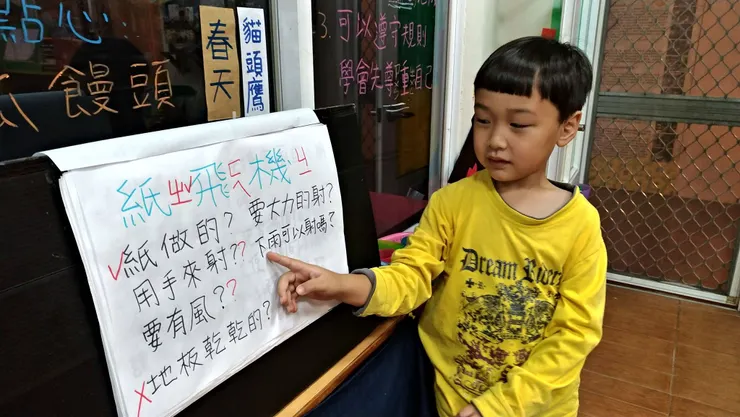 點心:
饅頭
春天
貓頭鷹
3.可以遵守規則
學會先尊重自己
紙飛機
✓紙做的? 要大力的射?
用手來射?? 下雨可以射嗎?
要有風??
X地板乾乾的?
Dream